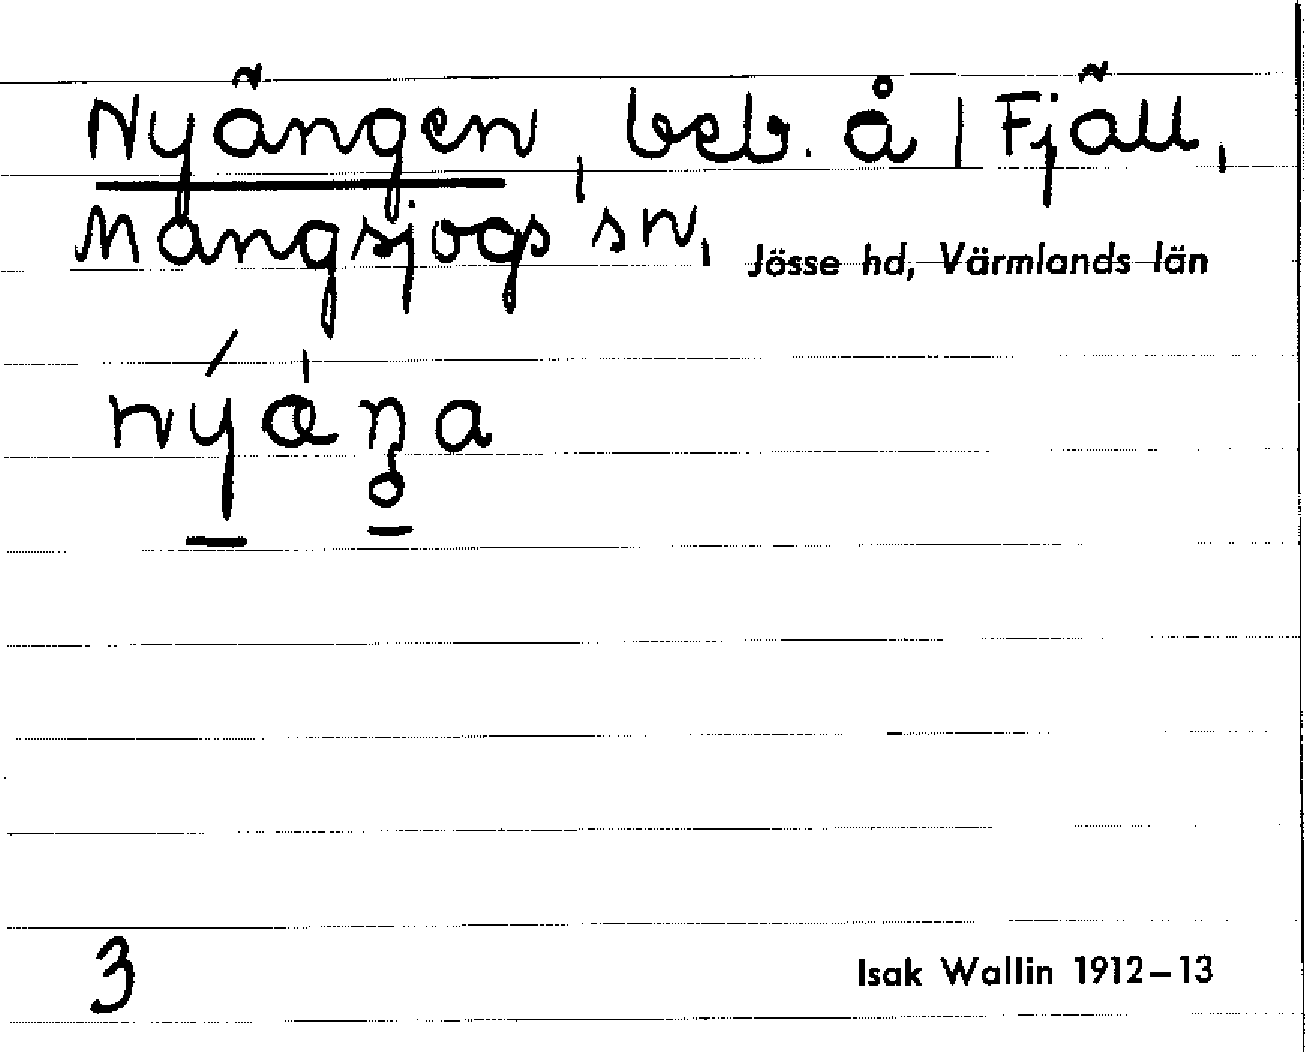 Nyängen, beb. å | Fjäll,
Mangsjogs sn, Jösse hd, Värmlands län
3
Isak Wallin 1912–13